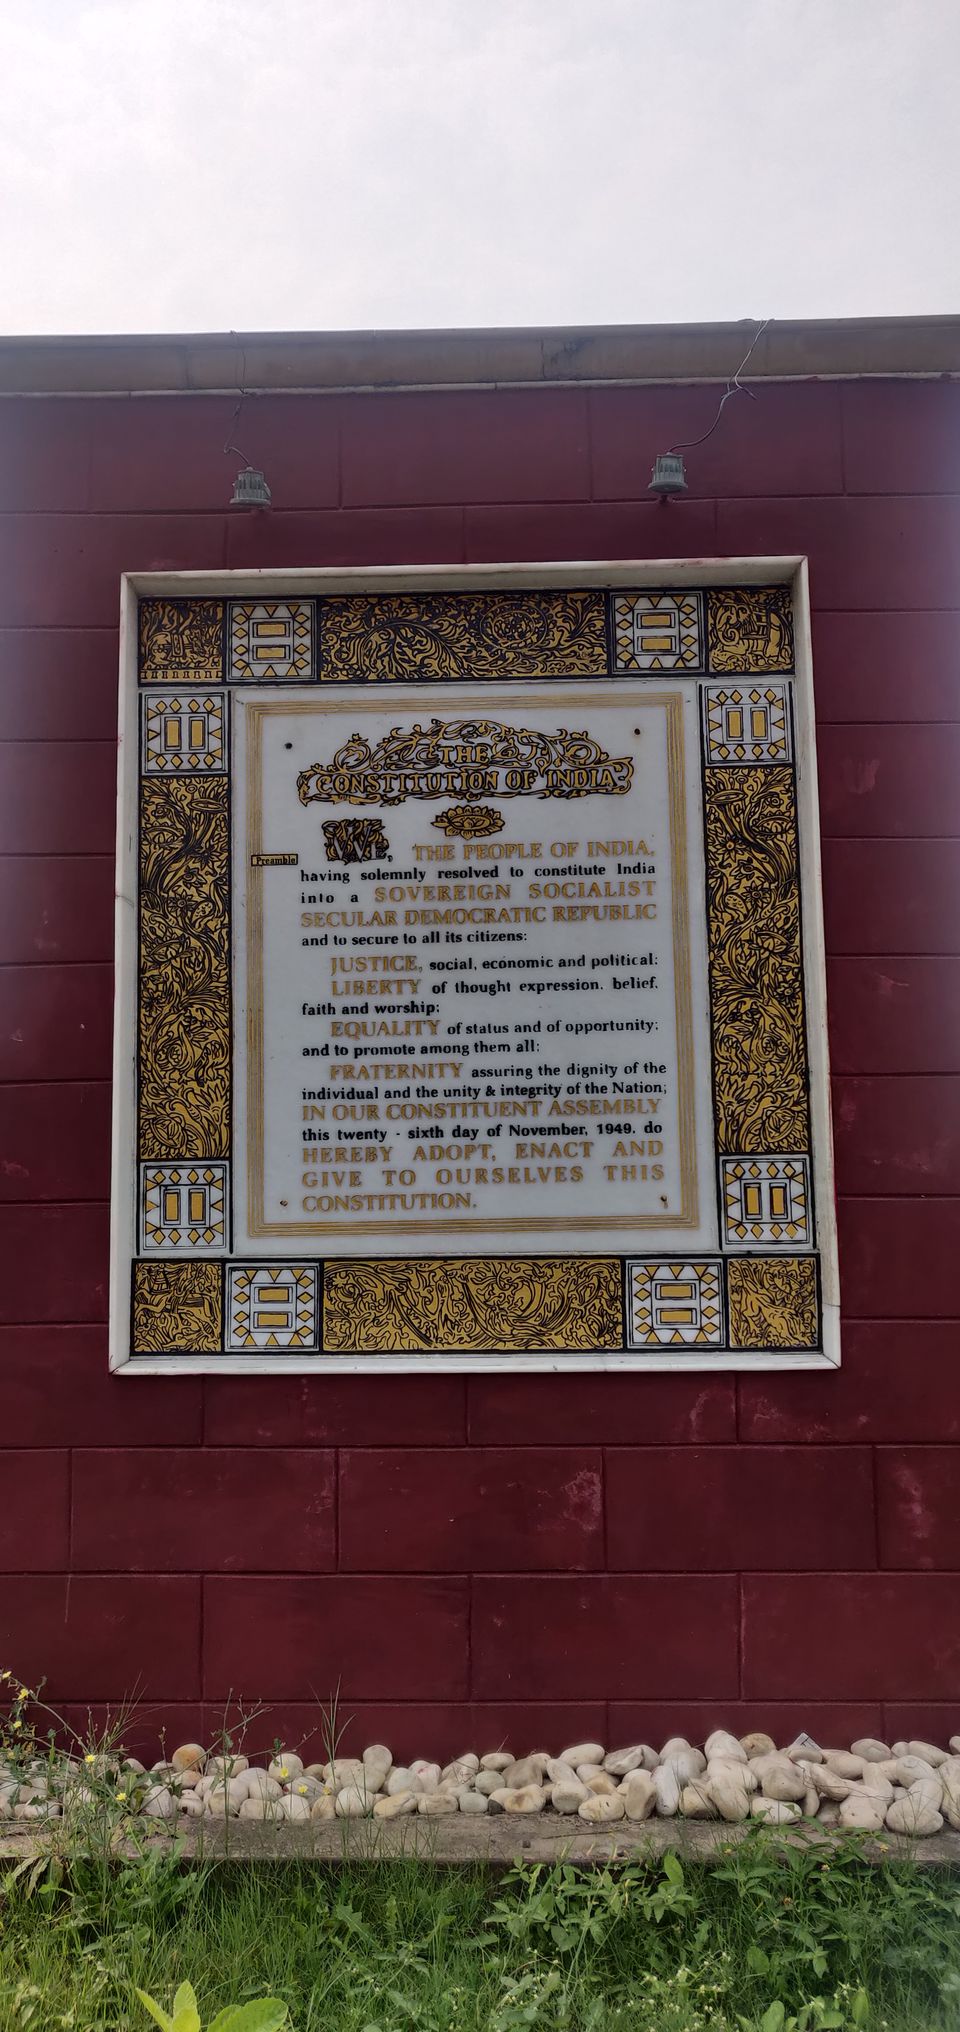 THE
CONSTITUTION OF INDIA
Preamble
WE, THE PEOPLE OF INDIA,
having solemnly resolved to constitute India
into a SOVEREIGN SOCIALIST
SECULAR DEMOCRATIC REPUBLIC
and to secure to all its citizens:
JUSTICE, social, economic and political;
LIBERTY of thought expression, belief,
faith and worship;
EQUALITY of status and of opportunity;
and to promote among them all;
FRATERNITY assuring the dignity of the
individual and the unity & integrity of the Nation;
IN OUR CONSTITUENT ASSEMBLY
this twenty - sixth day of November, 1949, do
HEREBY ADOPT, ENACT AND
GIVE TO OURSELVES THIS
CONSTITUTION.